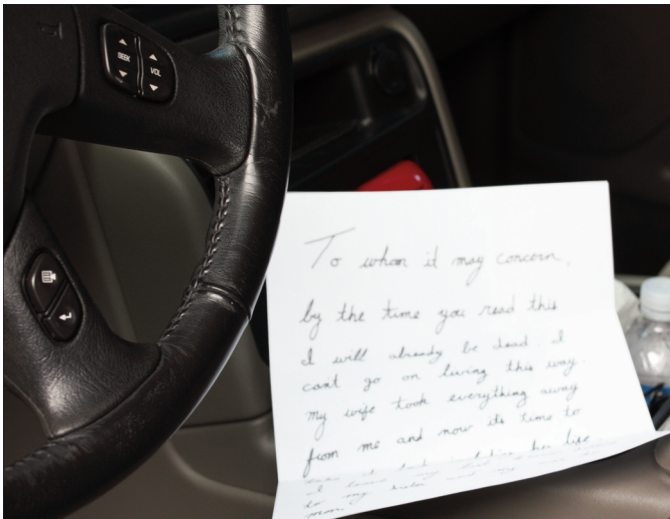 SEEK
VOL
To whom it may concern,
by the time you read this
I will already be dead I
can't go on living this way.
my wife took everything away
from me and now its time to
her life
to my
mom.